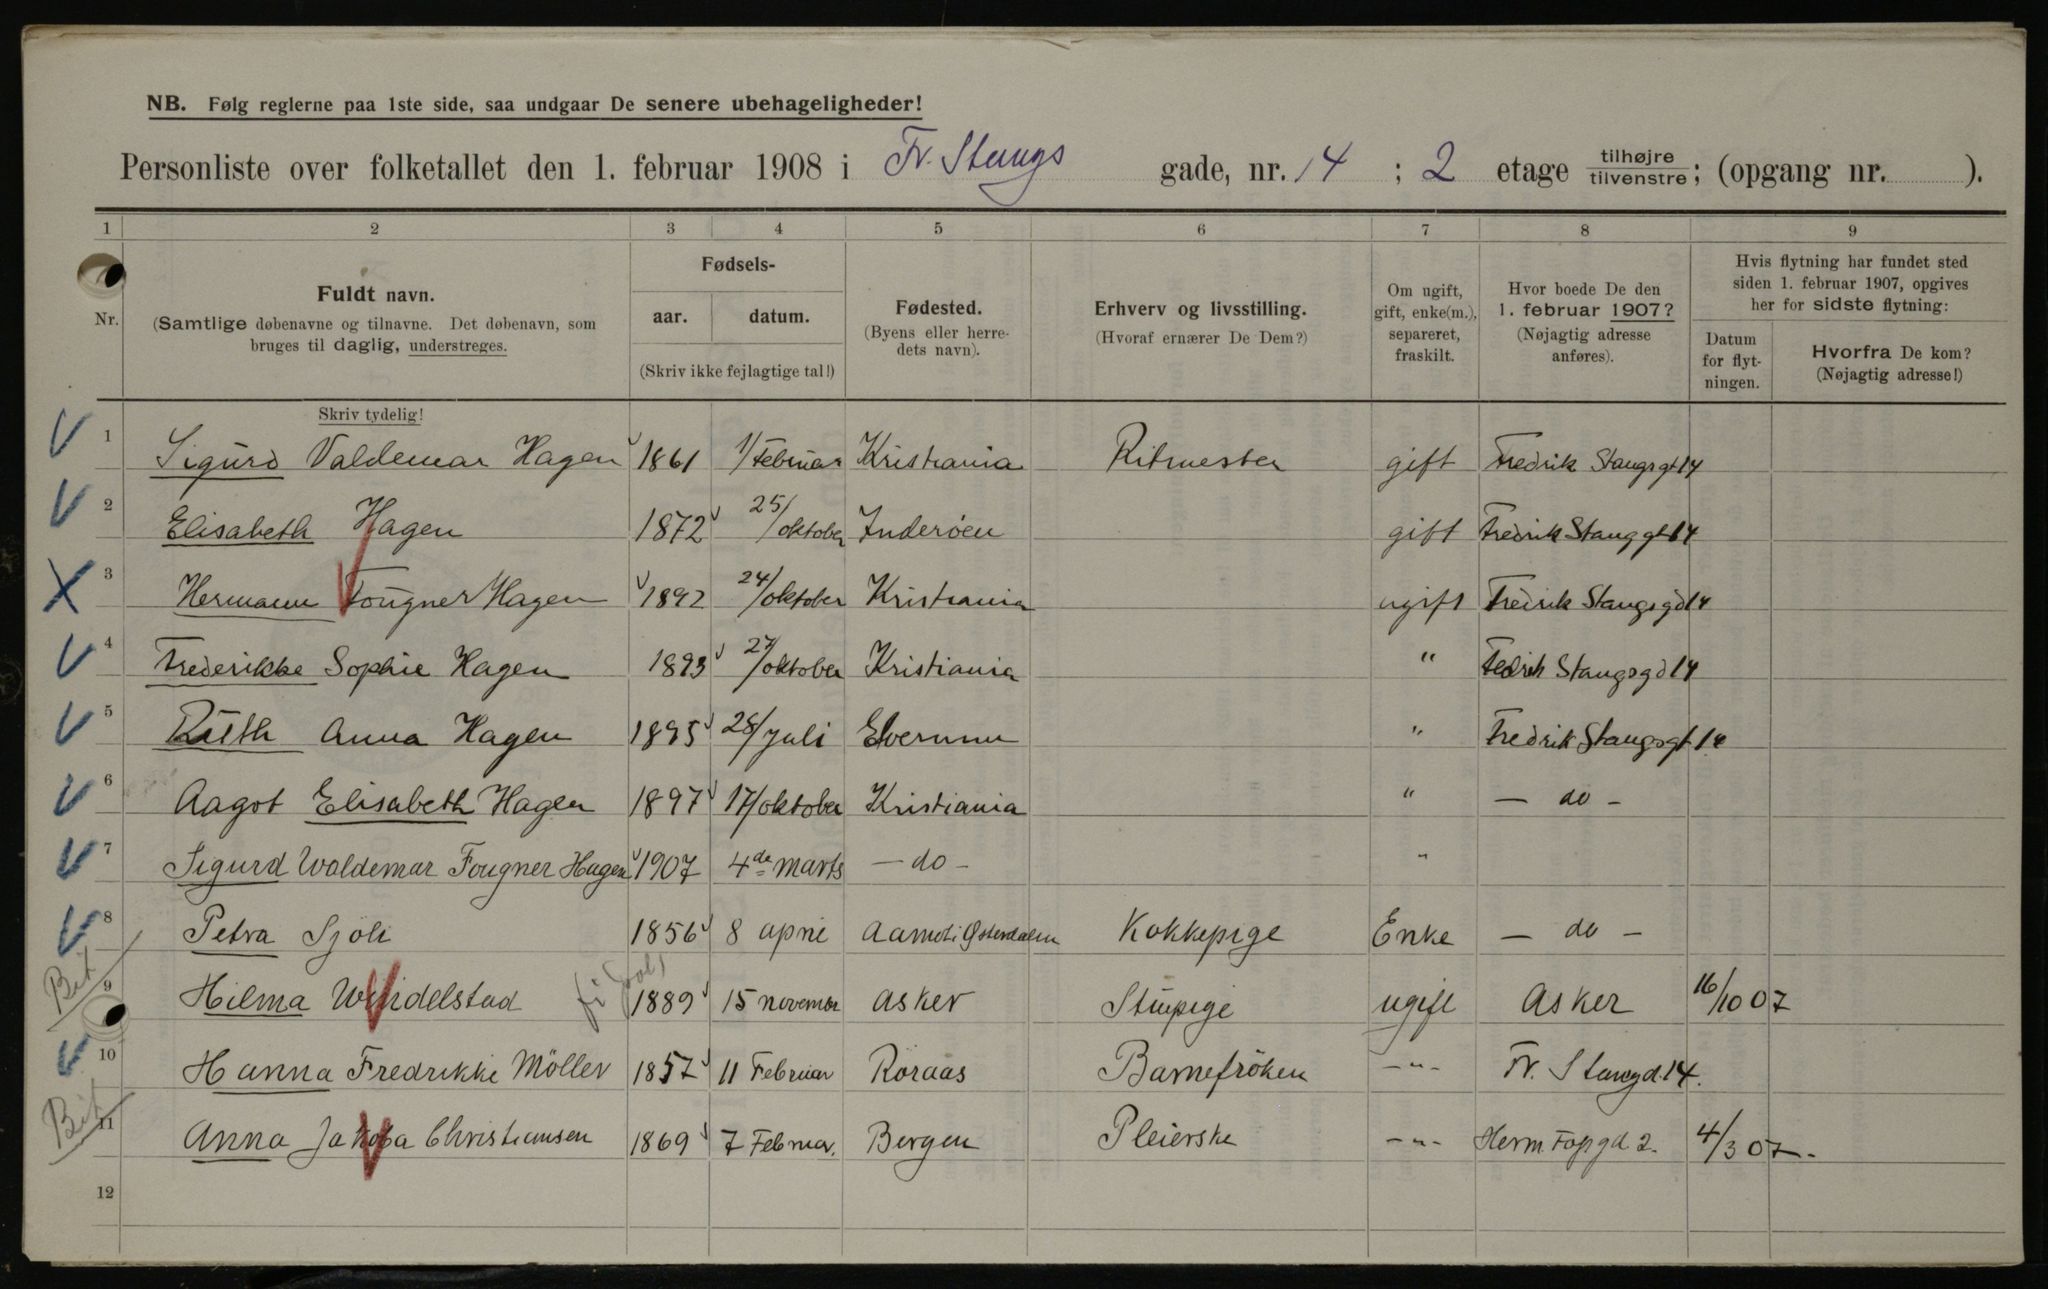 NB. Følg reglerne paa 1ste side, saa undgaar De senere ubehageligheder!
Personliste over folketallet den 1. februar 1908 i Fr. Stangs gade, nr. 14 ; 2 etage tilhøjre/tilvenstre; (opgang nr. ).
1 2 3 4 5 6 7 8 9
Nr.
Fuldt navn.
(Samtlige døbenavne og tilnavne. Det døbenavn, som
bruges til daglig, understreges.
Skriv tydelig!
Fødsels-
aar. datum.
(Skriv ikke fejlagtige tal!)
Fødested.
(Byens eller herre-
dets navn).
Erhverv og livsstilling.
(Hvoraf ernærer De Dem?)
Om ugift,
gift, enke(m.),
separeret,
fraskilt.
Hvor boede De den
1. februar 1907?
(Nøjagtig adresse
anføres).
Hvis flytning har fundet sted
siden 1. februar 1907, opgives
her for sidste flytning:
Datum
for flyt-
ningen.
Hvorfra De kom?
(Nøjagtig adresse!)
1 Sigurd Valdemar Hagen 1861 1/februar Kristiania Ritmester gift Fredrik Stangsgt 14
2 Elisabeth Hagen 1872 25/oktober Inderøen gift Fredrik Stanggt 14
3 Hermann Fougner Hagen 1892 24/oktober Kristiania ugift Fredrik Stangsgd 14
4 Frederikke Sophie Hagen 1893 27/oktober Kristiania " Fedrik Stangsgd 14
5 Ruth Anna Hagen 1895 28/juli Elverum " Fredrik Stangsgt 14
6 Aagot Elisabeth Hagen 1897 17/oktober Kristiania " — do -
7 Sigurd Waldemar Fougner Hagen 1907 4de marts — do - "
8 Petra Sjöli 1856 8 april Aamot i Østerdalen Kokkepige Enke — do -
Bit
9 Hilma Windelstad 1889 15 november Asker Stupige ugift Asker 16/10 07
10 Hanna Fredrikke Möller 1857 11 Februar Röraas Barnefröken -"- Fr. Stangd. 14.
Bit
11 Anna Jakoba Christiansen 1869 7 Februar. Bergen Pleierske -"- Herm. Fossgd 2. 4/3 07-
12